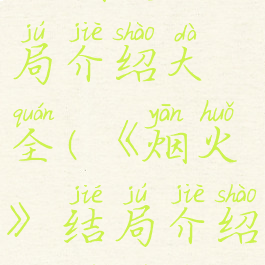 jú jiè shào dà
局介绍大
quán yān huǒ
全(《烟火
jié jú jiè shào
》结局介绍